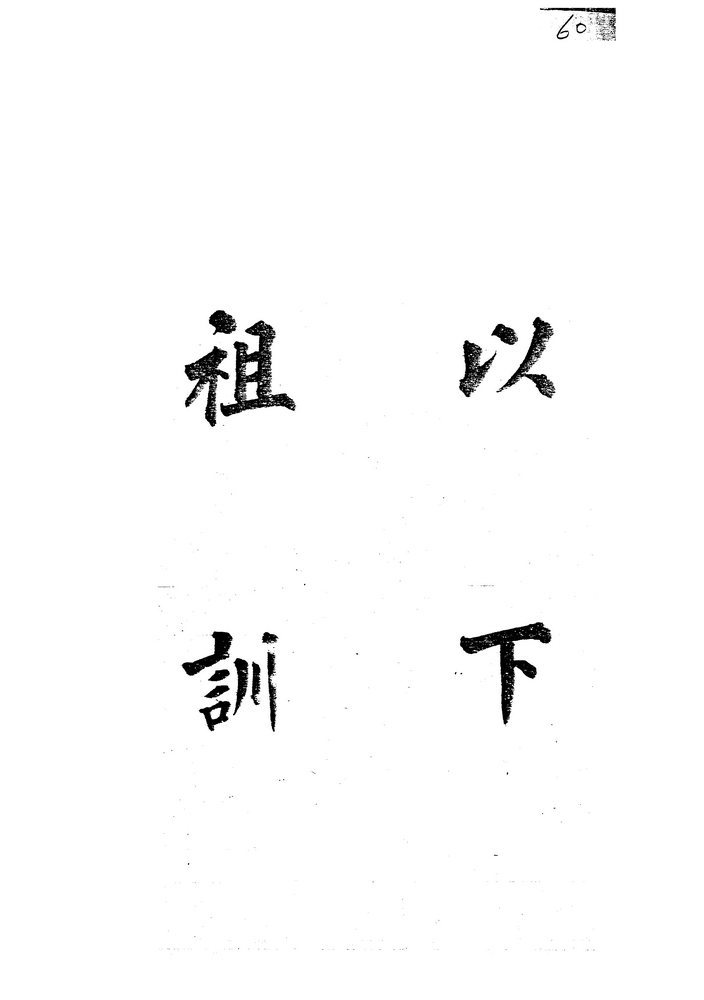 60
以下
祖訓